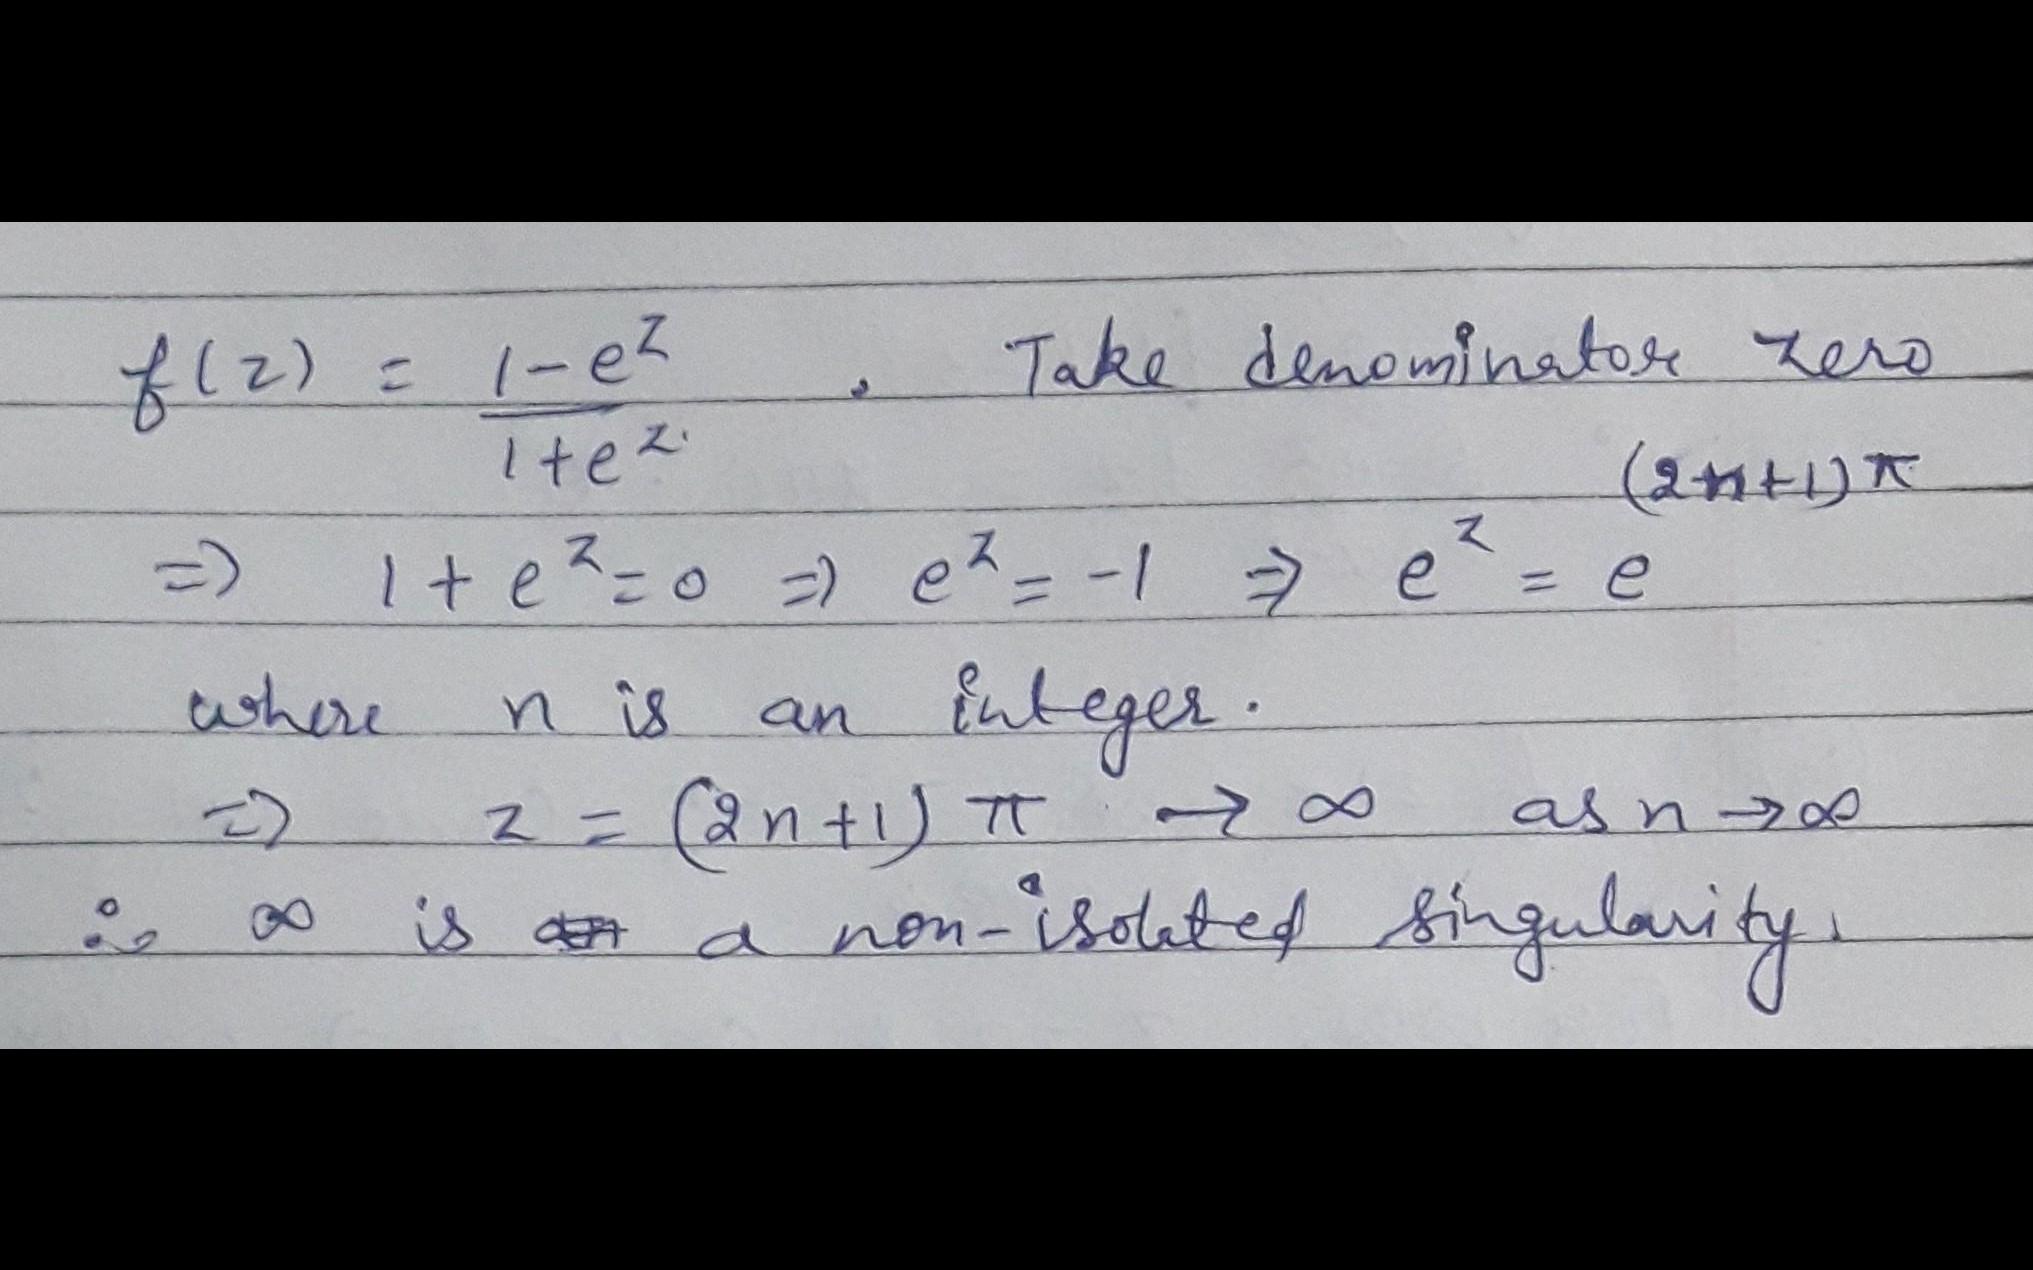 f(z) = (1-e^z)/(1+e^z) . Take denominator zero
⇒ 1 + e^z = 0 ⇒ e^z = -1 ⇒ e^z = e^(2n+1)π
where n is an integer.
⇒ z = (2n+1) π → ∞ as n → ∞
∴ ∞ is a non-isolated singularity.